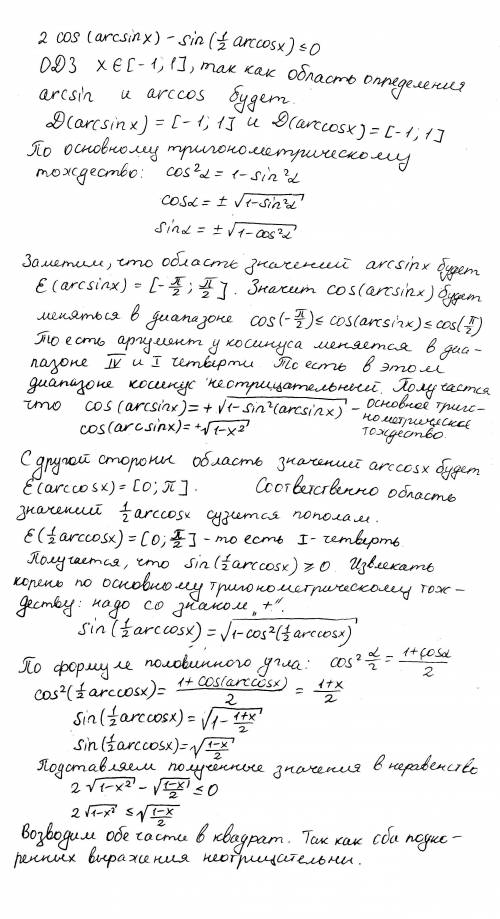 2 cos (arcsinx) - sin(½ arccosx) ≤ 0
ОДЗ x ∈ [-1; 1], так как область определения
arcsin и arccos будет.
D(arcsinx) = [-1; 1] и D(arccosx) = [-1; 1]
По основному тригонометрическому
тождество: cos²α = 1 - sin²α
cosα = ± √(1-sin²α)
sinα = ± √(1-cos²α)
Заметим, что область значений arcsinx будет
E(arcsinx) = [-π/2; π/2]. Значит cos(arcsinx) будет
меняться в диапазоне cos(-π/2) ≤ cos(arcsinx) ≤ cos(π/2)
То есть аргумент у косинуса меняется в диа-
пазоне IV и I четверти То есть в этом
диапазоне косинус неотрицательный. Получается
что cos(arcsinx) = + √(1-sin²(arcsinx)) - основное триго-
нометрическое
cos(arcsinx) = +√(1-x²) тождество.
С другой стороны область значений arccosx будет
E(arccosx) = [0; π]. Соответственно область
значений ½ arccosx сузится пополам.
E(½ arccosx) = [0; π/2] - то есть I - четверть.
Получается, что sin(½ arccosx) ≥ 0. Извлекать
корень по основному тригонометрическому тож-
деству: надо со знаком „+“.
sin(½ arccosx) = √(1-cos²(½ arccosx))
По формуле половинного угла: cos² α/2 = (1+cosα)/2
cos²(½ arccosx) = (1 + cos(arccosx))/2 = (1+x)/2
sin(½ arccosx) = √(1 - (1+x)/2)
sin(½ arccosx) = √((1-x)/2)
Подставляем полученные значения в неравенство
2 √(1-x²) - √((1-x)/2) ≤ 0
2 √(1-x²) ≤ √((1-x)/2)
Возводим обе части в квадрат. Так как оба подко-
ренных выражения неотрицательны.